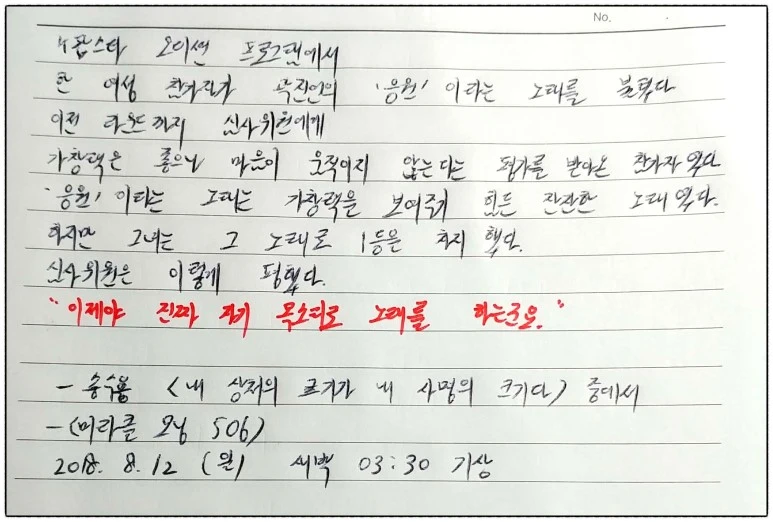 No.
K팝스타 오디션 프로그램에서
한 여성 참가자가 곽진언의 '응원'이라는 노래를 불렀다
이전 라운드까지 심사위원에게
가창력은 좋으나 마음이 움직이지 않는다는 평가를 받아온 참가자였다
'응원'이라는 노래는 가창력을 보여주기 힘든 잔잔한 노래였다.
하지만 그녀는 그 노래로 1등을 차지했다.
심사위원은 이렇게 평했다.
"이제야 진짜 자기 목소리로 노래를 하는군요."
- 송수용 <내 상처의 크기가 내 사명의 크기다> 중에서
- <미라클 모닝 506>
2018. 8. 12 (일) 새벽 03:30 기상